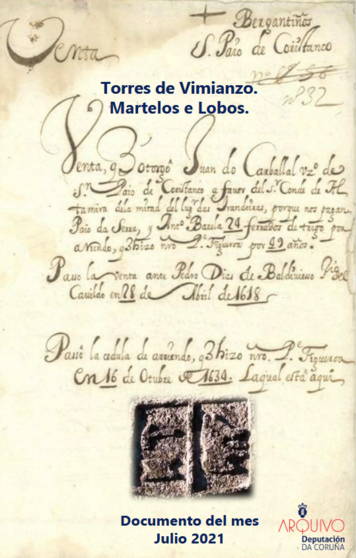 Bergantiños
Venta S. Paio de Coristanco
nº 832
Torres de Vimianzo.
Martelos e Lobos.
Venta, q̃ otorgó Juan do Carballal vzº de
Sn Paio de Coristanco a favor del Sr. Conde de Al
tamira dela mitad del lugr das Grandeiras, porque nos pagan
Paio da Serra, y Antº Baṙela 24 ferrados de trigo por
arriendo, q̃ hizo nro Pe Figueroa por 99 años.
Passó la venta ante Pedro Diaz de Baldivieso
Cavildo en 28 de Abril de 1618
Passó la cedula de arriendo, q̃ hizo nro. Pe Figueroa
en 16 de Otubre de 1634. Laqual está aqui
Documento del mes
Julio 2021
ARQUIVO
Deputación
DA CORUÑA